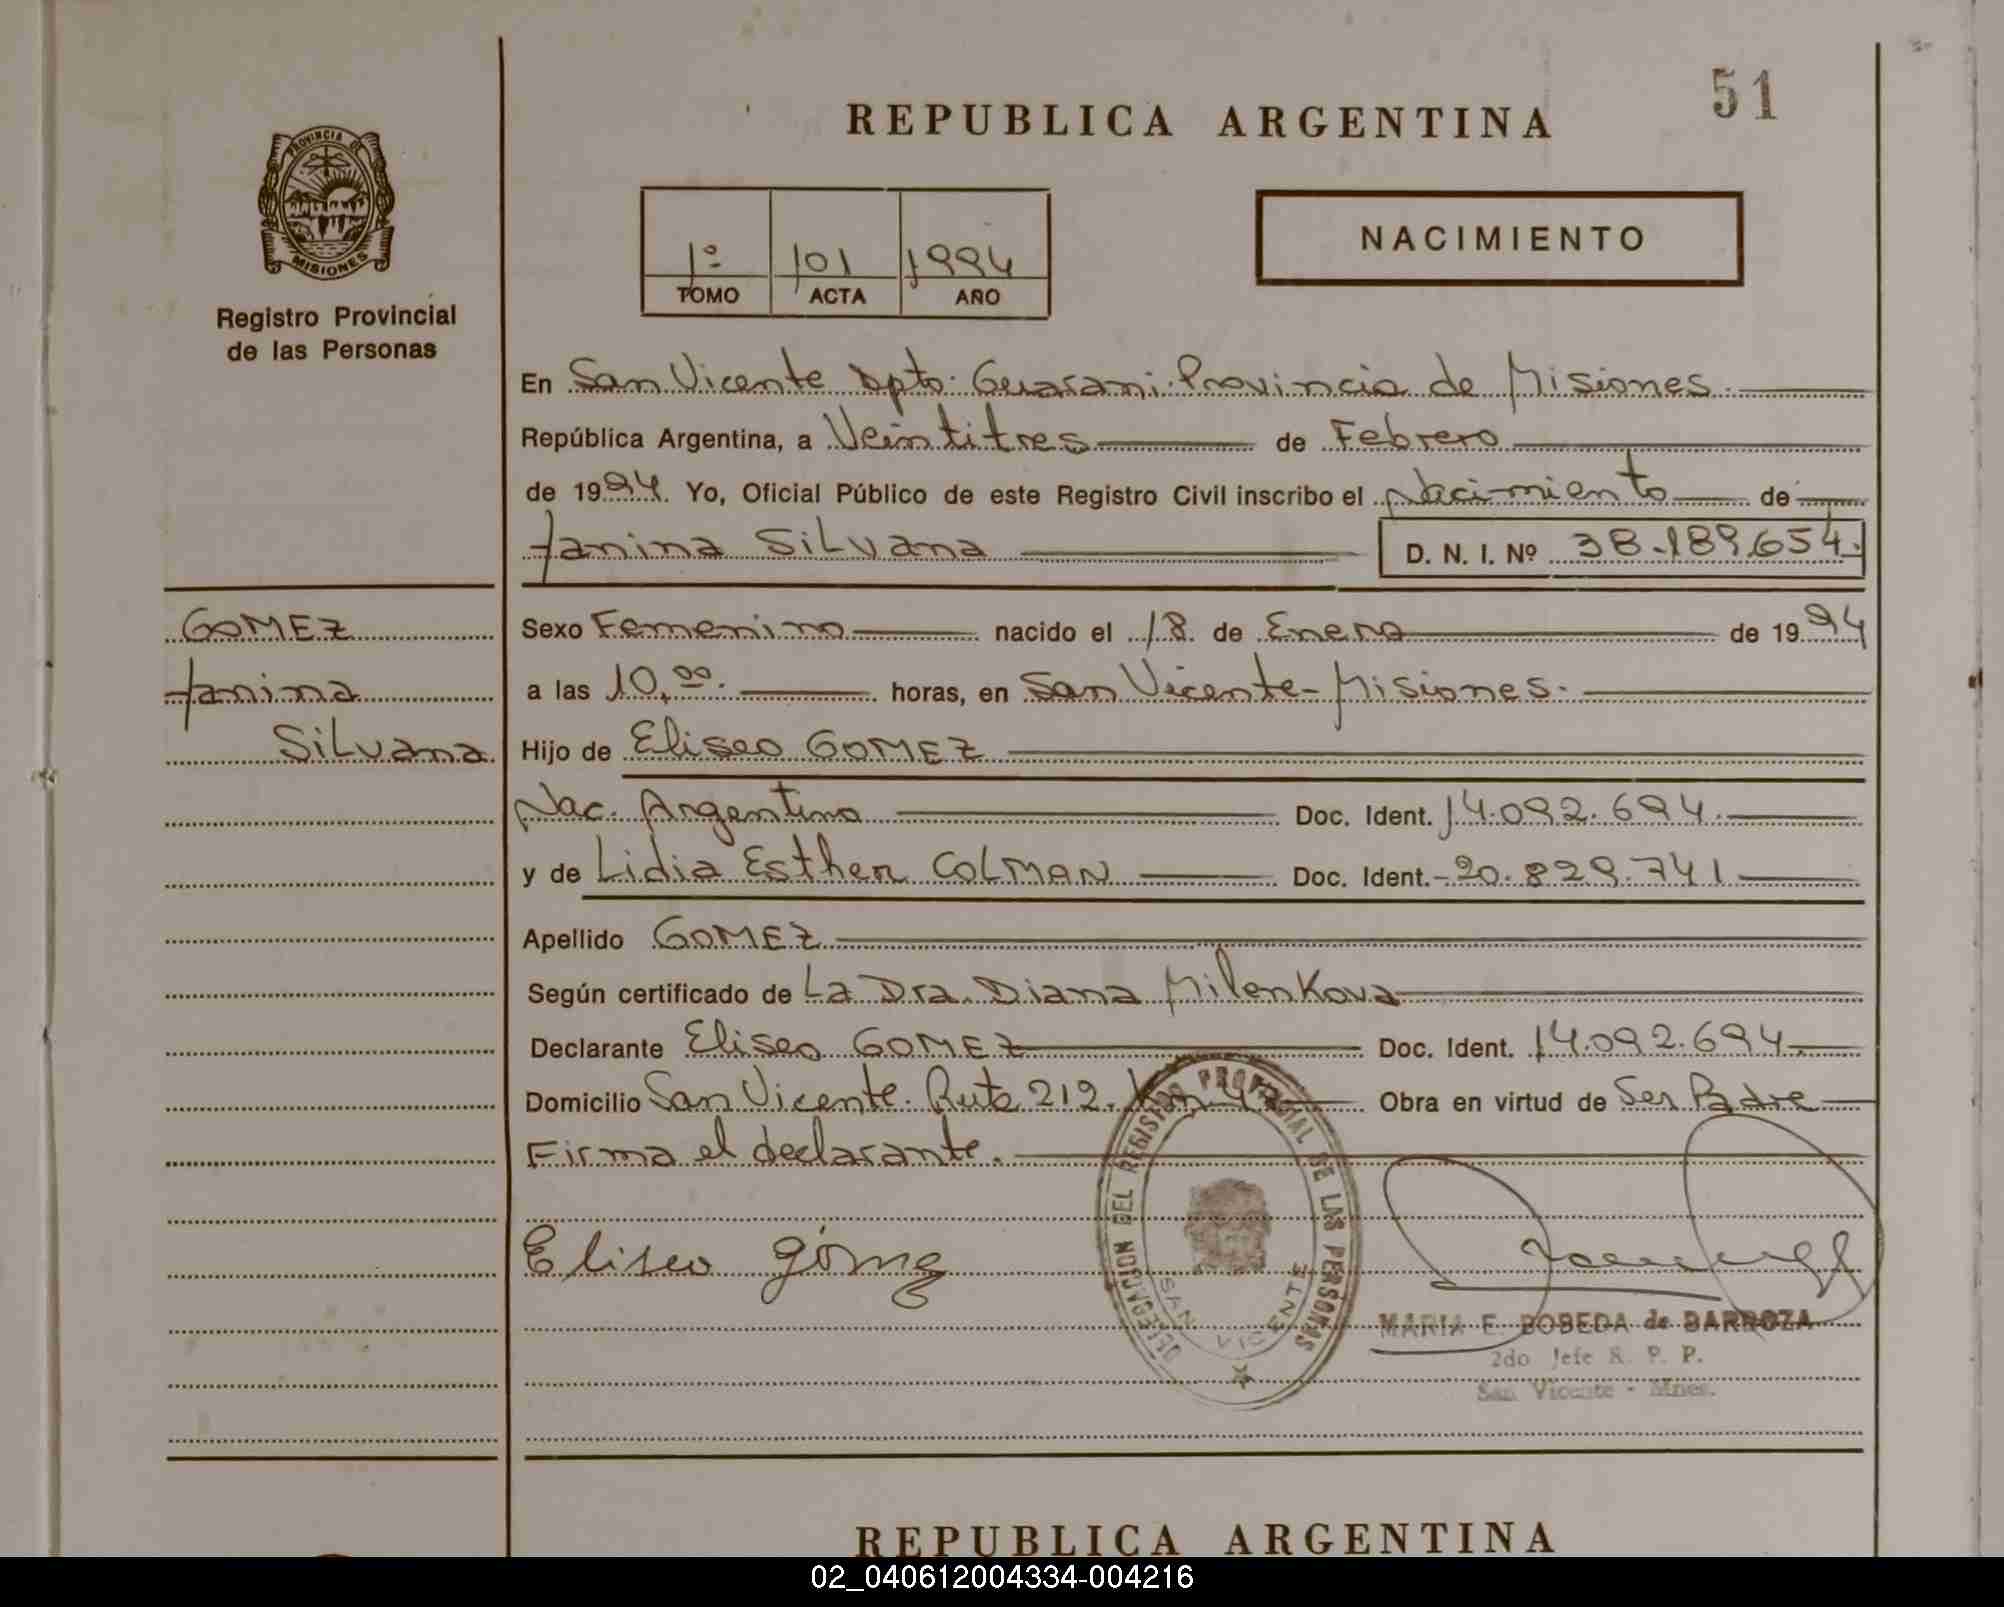 51
REPUBLICA ARGENTINA
PROVINCIA DE
MISIONES
Registro Provincial
de las Personas
1º 101 1994
TOMO ACTA AÑO
NACIMIENTO
En San Vicente Dpto. Guarani. Provincia de Misiones.
República Argentina, a Veintitres de Febrero
de 1994. Yo, Oficial Público de este Registro Civil inscribo el Nacimiento de
Janina Silvana D. N. I. Nº 38.189.654.
GOMEZ
Janina
Silvana
Sexo Femenino nacido el 18 de Enero de 1994
a las 10,00. horas, en San Vicente - Misiones.
Hijo de Eliseo GOMEZ
Nac. Argentino Doc. Ident. 14.092.694.
y de Lidia Esther COLMAN Doc. Ident. 20.829.741
Apellido GOMEZ
Según certificado de La Dra. Diana Milenkova
Declarante Eliseo GOMEZ Doc. Ident. 14.092.694.
Domicilio San Vicente. Ruta 212. Km Obra en virtud de Ser Padre
Firma el declarante.
Eliseo gómez
DELEGACION DEL REGISTRO PROVINCIAL DE LAS PERSONAS
SAN VICENTE
MARIA E. BOBEDA de BARROZA
2do Jefe R. P. P.
San Vicente - Mnes.
REPUBLICA ARGENTINA
02_040612004334-004216